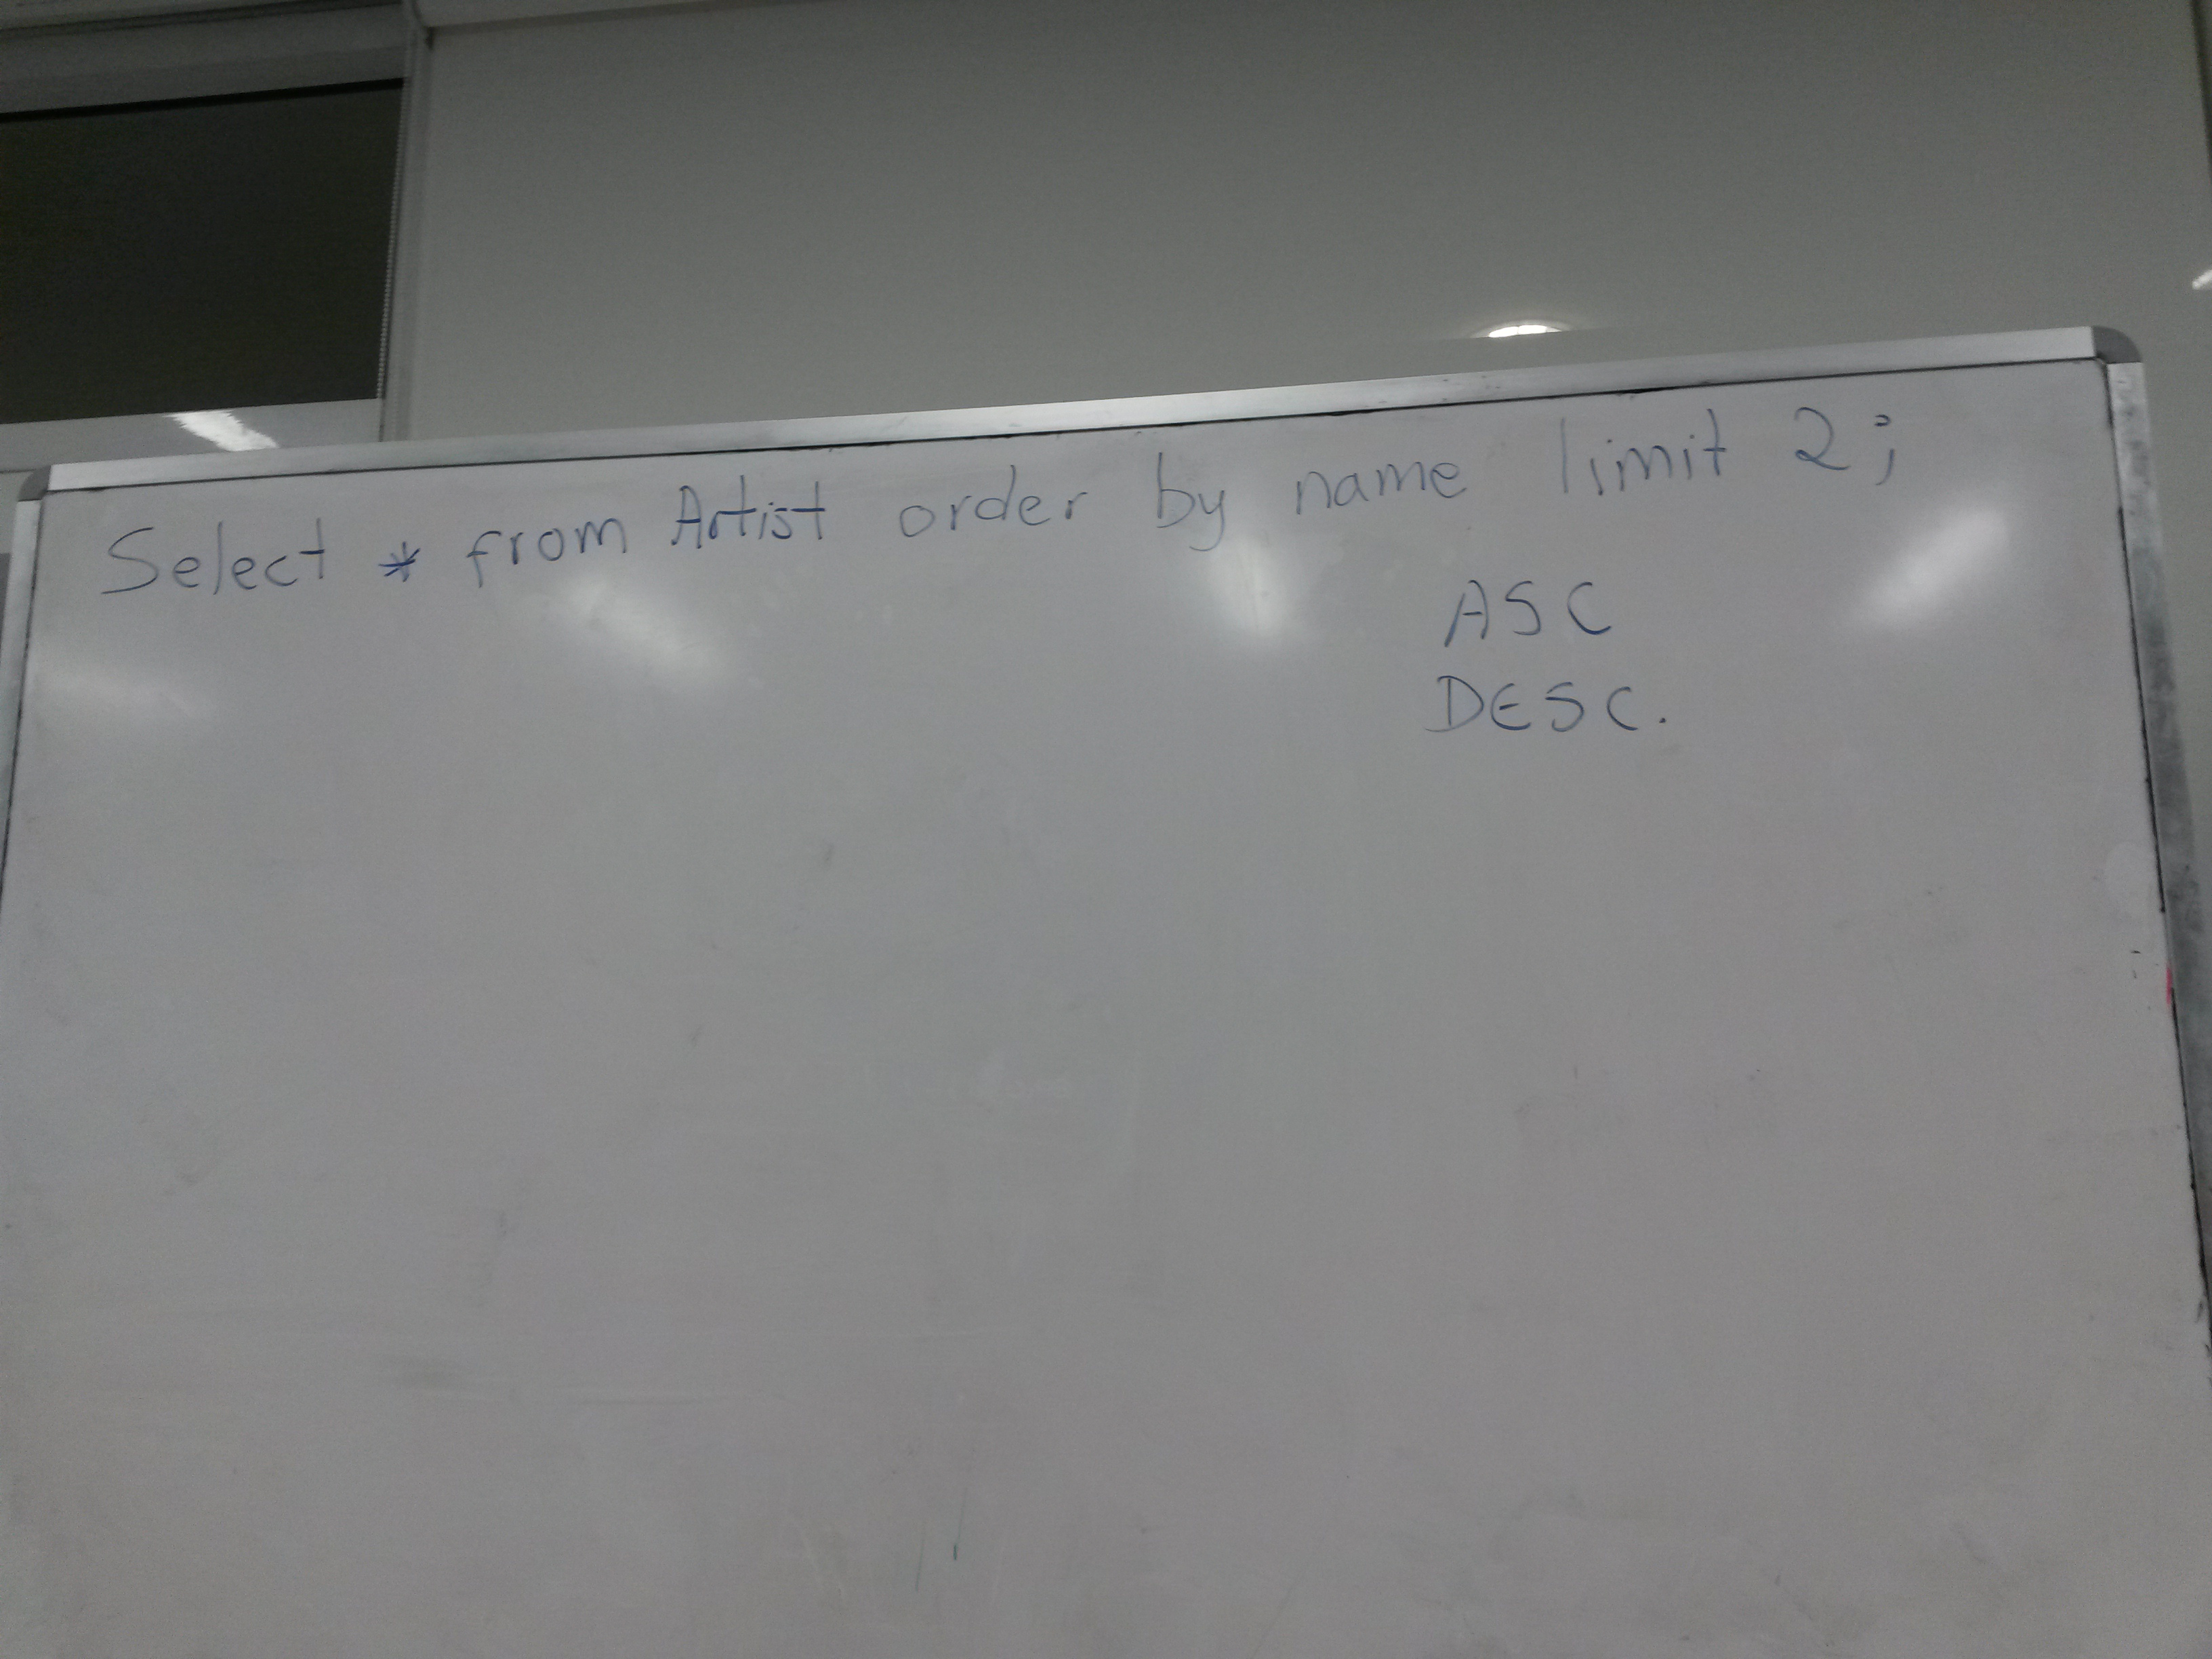 Select * from Artist order by name limit 2;
ASC
DESC.